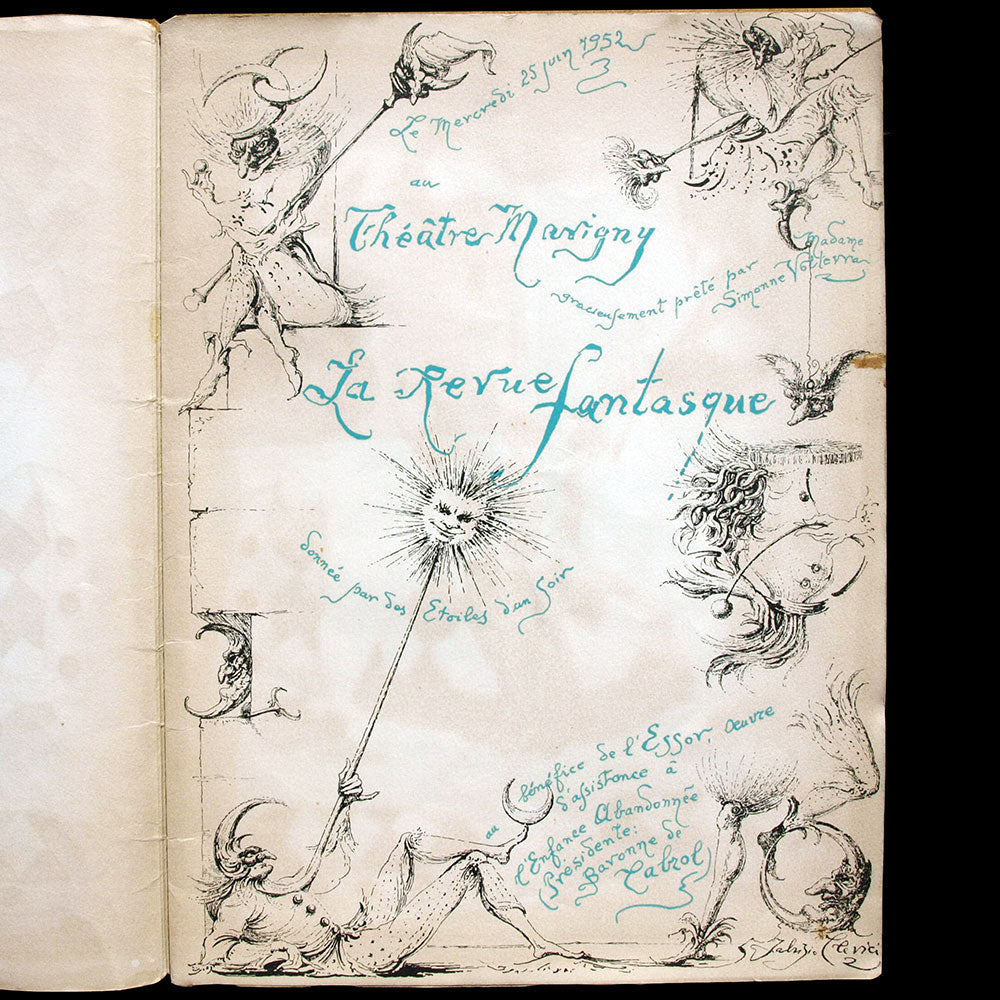 Le Mercredi 25 juin 1952
au
Théâtre Marigny
gracieusement prêté par
Madame
Simonne Volterra
La Revue fantasque
donnée par des Etoiles d'un Soir
au bénéfice de l'Essor, œuvre
d'assistance à
l'Enfance Abandonnée
(Présidente:
Baronne de
Cabrol)
Fabrizio Clerici